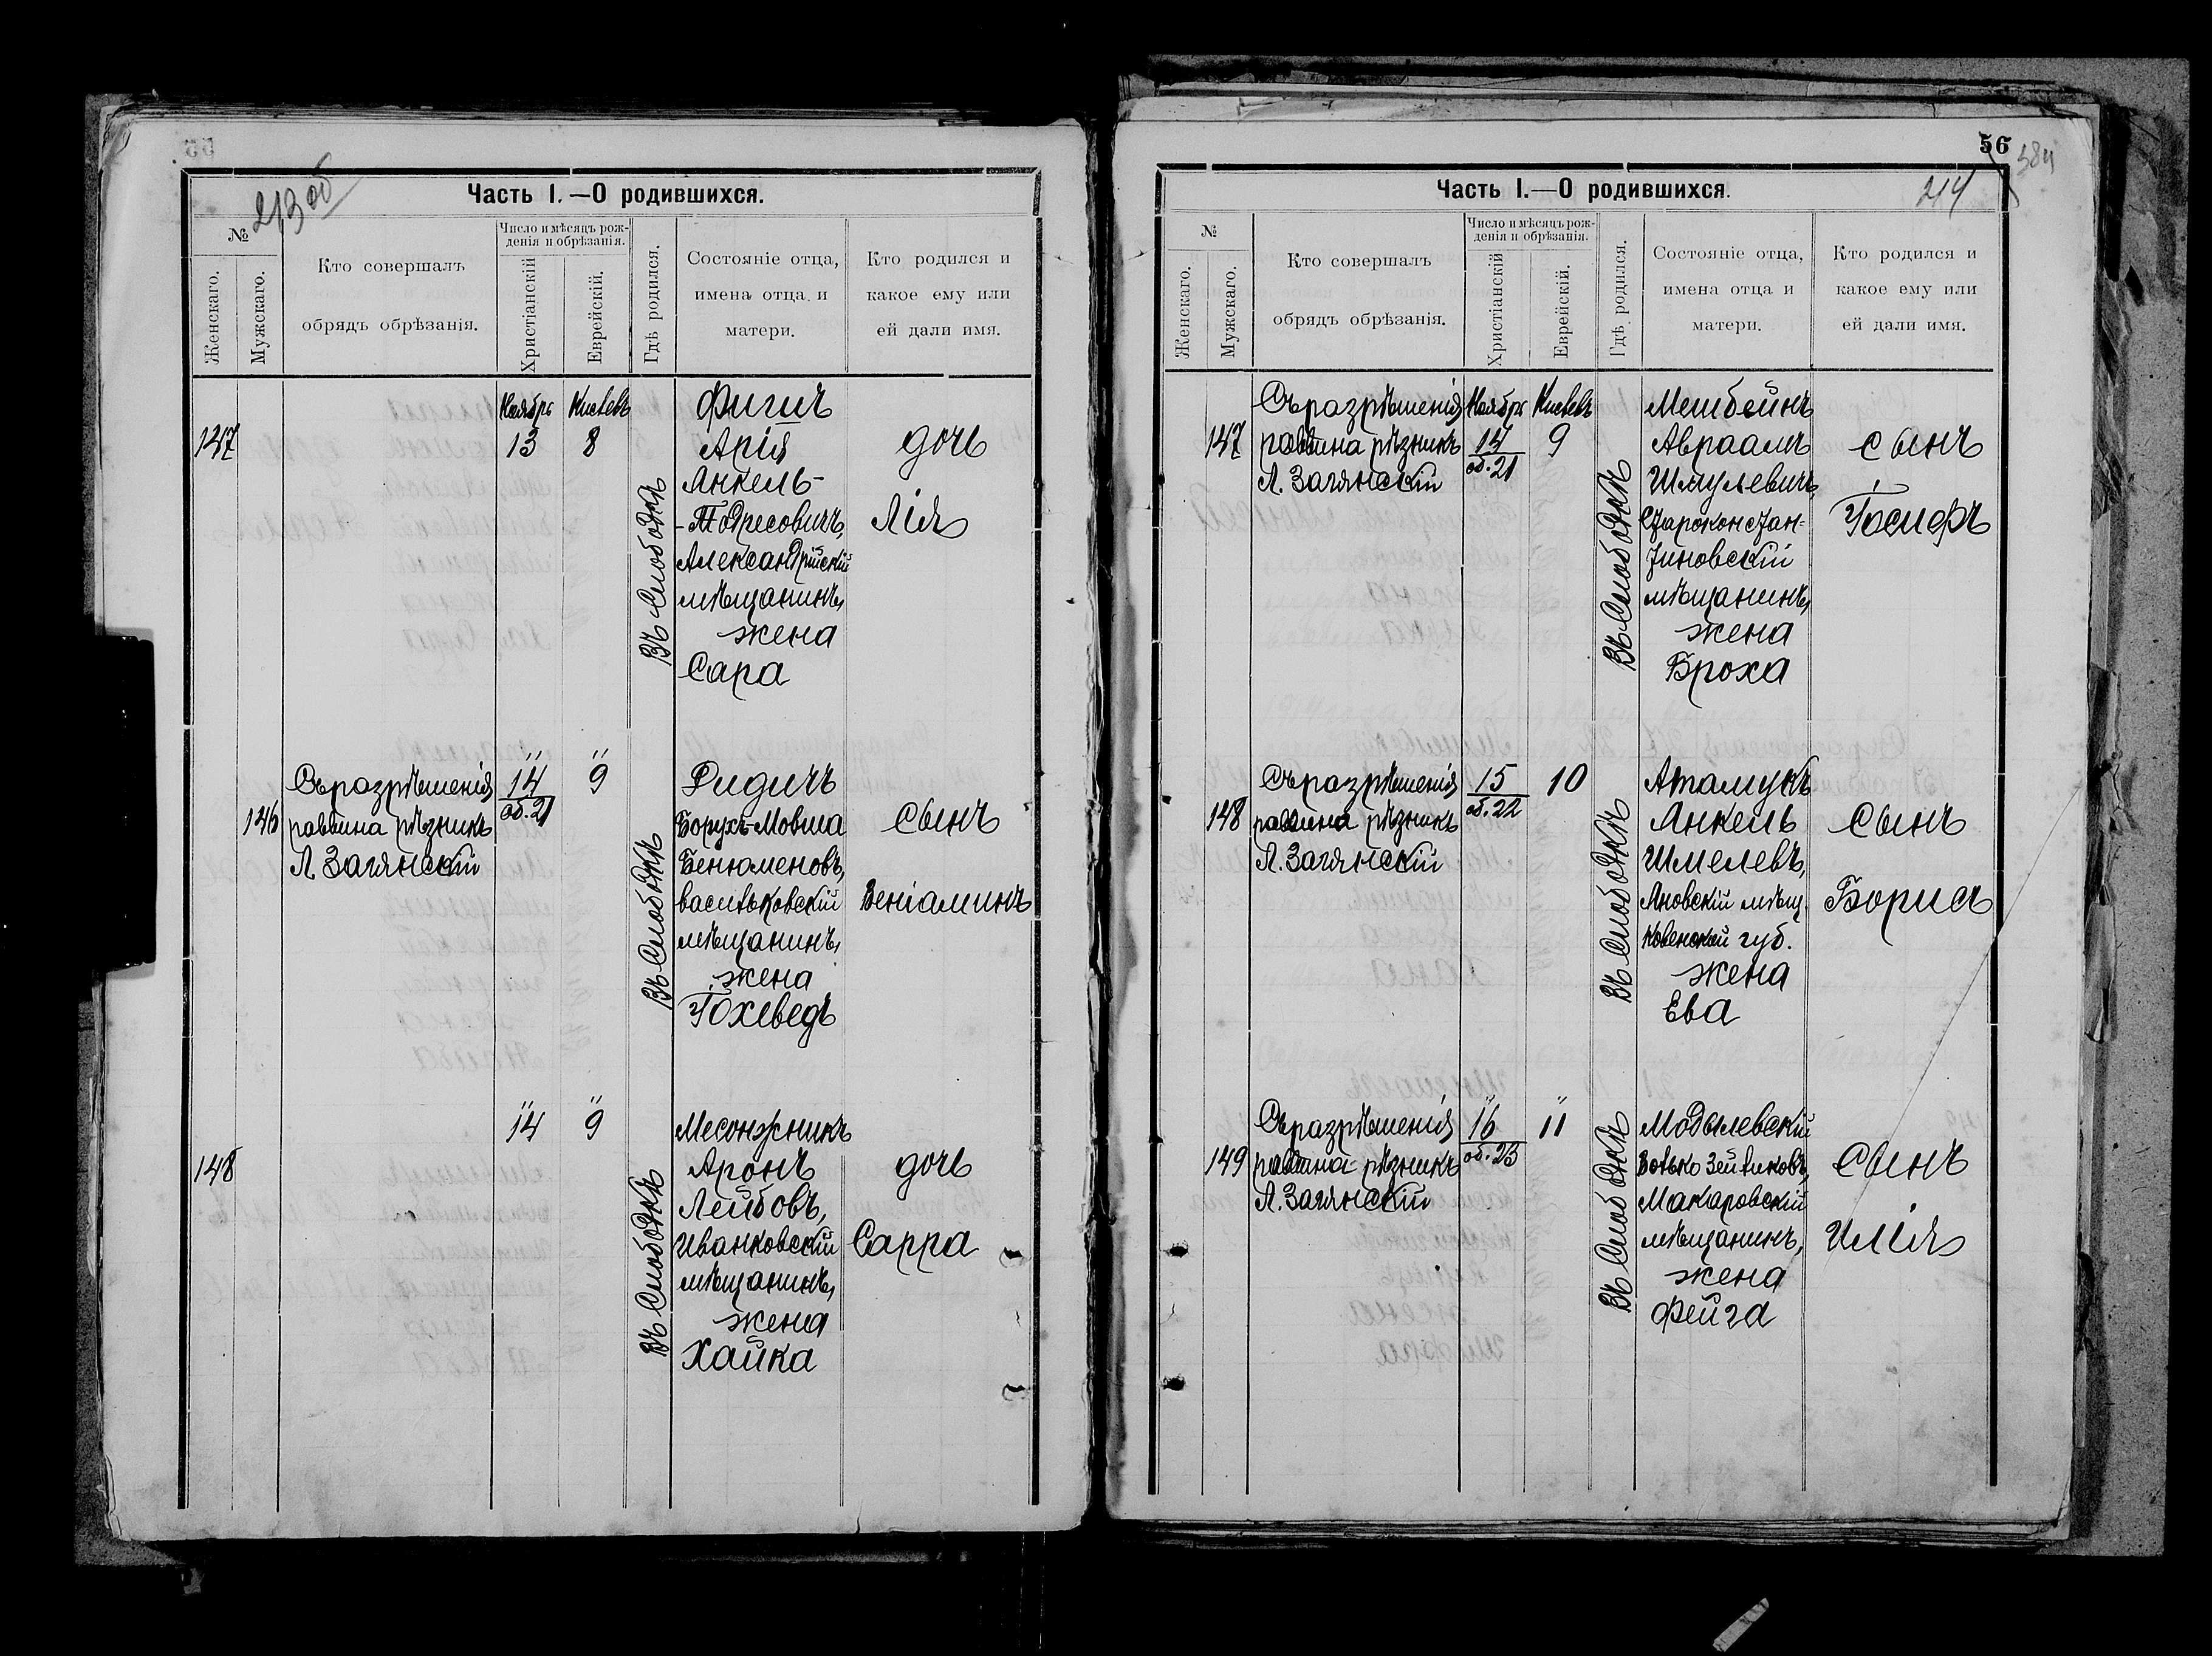 55
213 об
Часть I.—О родившихся.
№
Женскаго.
Мужскаго.
Кто совершалъ
обрядъ обрѣзанія.
Число и мѣсяцъ рож-
денія и обрѣзанія.
Христіанскій
Еврейскій.
Гдѣ родился.
Состояніе отца,
имена отца и
матери.
Кто родился и
какое ему или
ей дали имя.
147
Ноябрь
13
Кислевъ
8
Въ Слободкѣ
Фигичъ
Арія
Анкель-
-Тодресовичъ,
Александрійскій
мѣщанинъ,
жена
Сара
дочь
Лія
146
Съ разрѣшенія
раввина рѣзникъ
Л. Загянскій
" 14
об. 21
" 9
Въ Слободкѣ
Ридичъ
Борухъ-Мовша
Бенюменовъ,
васильковскій
мѣщанинъ,
жена
Іохеведъ
сынъ
Веніаминъ
148
" 14
" 9
Въ Слободкѣ
Месонжникъ
Аронъ
Лейбовъ,
Иванковскій
мѣщанинъ,
жена
Хайка
дочь
Сарра
56
214
Часть I.—О родившихся.
№
Женскаго.
Мужскаго.
Кто совершалъ
обрядъ обрѣзанія.
Число и мѣсяцъ рож-
денія и обрѣзанія.
Христіанскій
Еврейскій.
Гдѣ родился.
Состояніе отца,
имена отца и
матери.
Кто родился и
какое ему или
ей дали имя.
147
Съ разрѣшенія
раввина рѣзникъ
Л. Загянскій
Ноябрь
14
об. 21
Кислевъ
9
Въ Слободкѣ
Мешбейнъ
Авраамъ
Шмулевичъ,
Староконстан=
тиновскій
мѣщанинъ,
жена
Броха
сынъ
Іосифъ
148
Съ разрѣшенія
раввина рѣзникъ
Л. Загянскій
15
об. 22
10
Въ Слободкѣ
Атамукъ
Янкель
Шмелевъ,
Яновскій мѣщ.
Ковенской губ.
жена
Ева
сынъ
Борисъ
149
Съ разрѣшенія
раввина рѣзникъ
Л. Загянскій
" 16
об. 23
" 11
Въ Слободкѣ
Модылевскій
Мокаровскій
мѣщанинъ,
жена
Фейга
сынъ
Илія